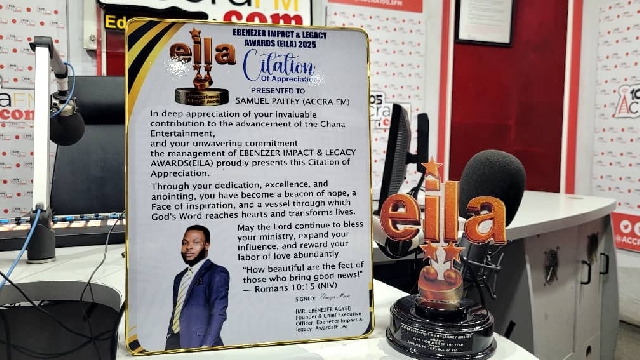 FM
.com
EBENEZER IMPACT & LEGACY
AWARDS (EILA) 2025
eila
Citation
Of Appreciation
PRESENTED TO
SAMUEL PAITEY (ACCRA FM)
In deep appreciation of your invaluable
contribution to the advancement of the Ghana
Entertainment,
and your unwavering commitment
the management of EBENEZER IMPACT & LEGACY
AWARDS(EILA) proudly presents this Citation of
Appreciation.
Through your dedication, excellence, and
anointing, you have become a beacon of hope, a
Face of inspiration, and a vessel through which
God's Word reaches hearts and transforms lives.
May the Lord continue to bless
your ministry, expand your
influence, and reward your
labor of love abundantly
"How beautiful are the feet of
those who bring good news!"
— Romans 10:15 (NIV)
SIGNED
Founder & Chief Executive
eila
.com